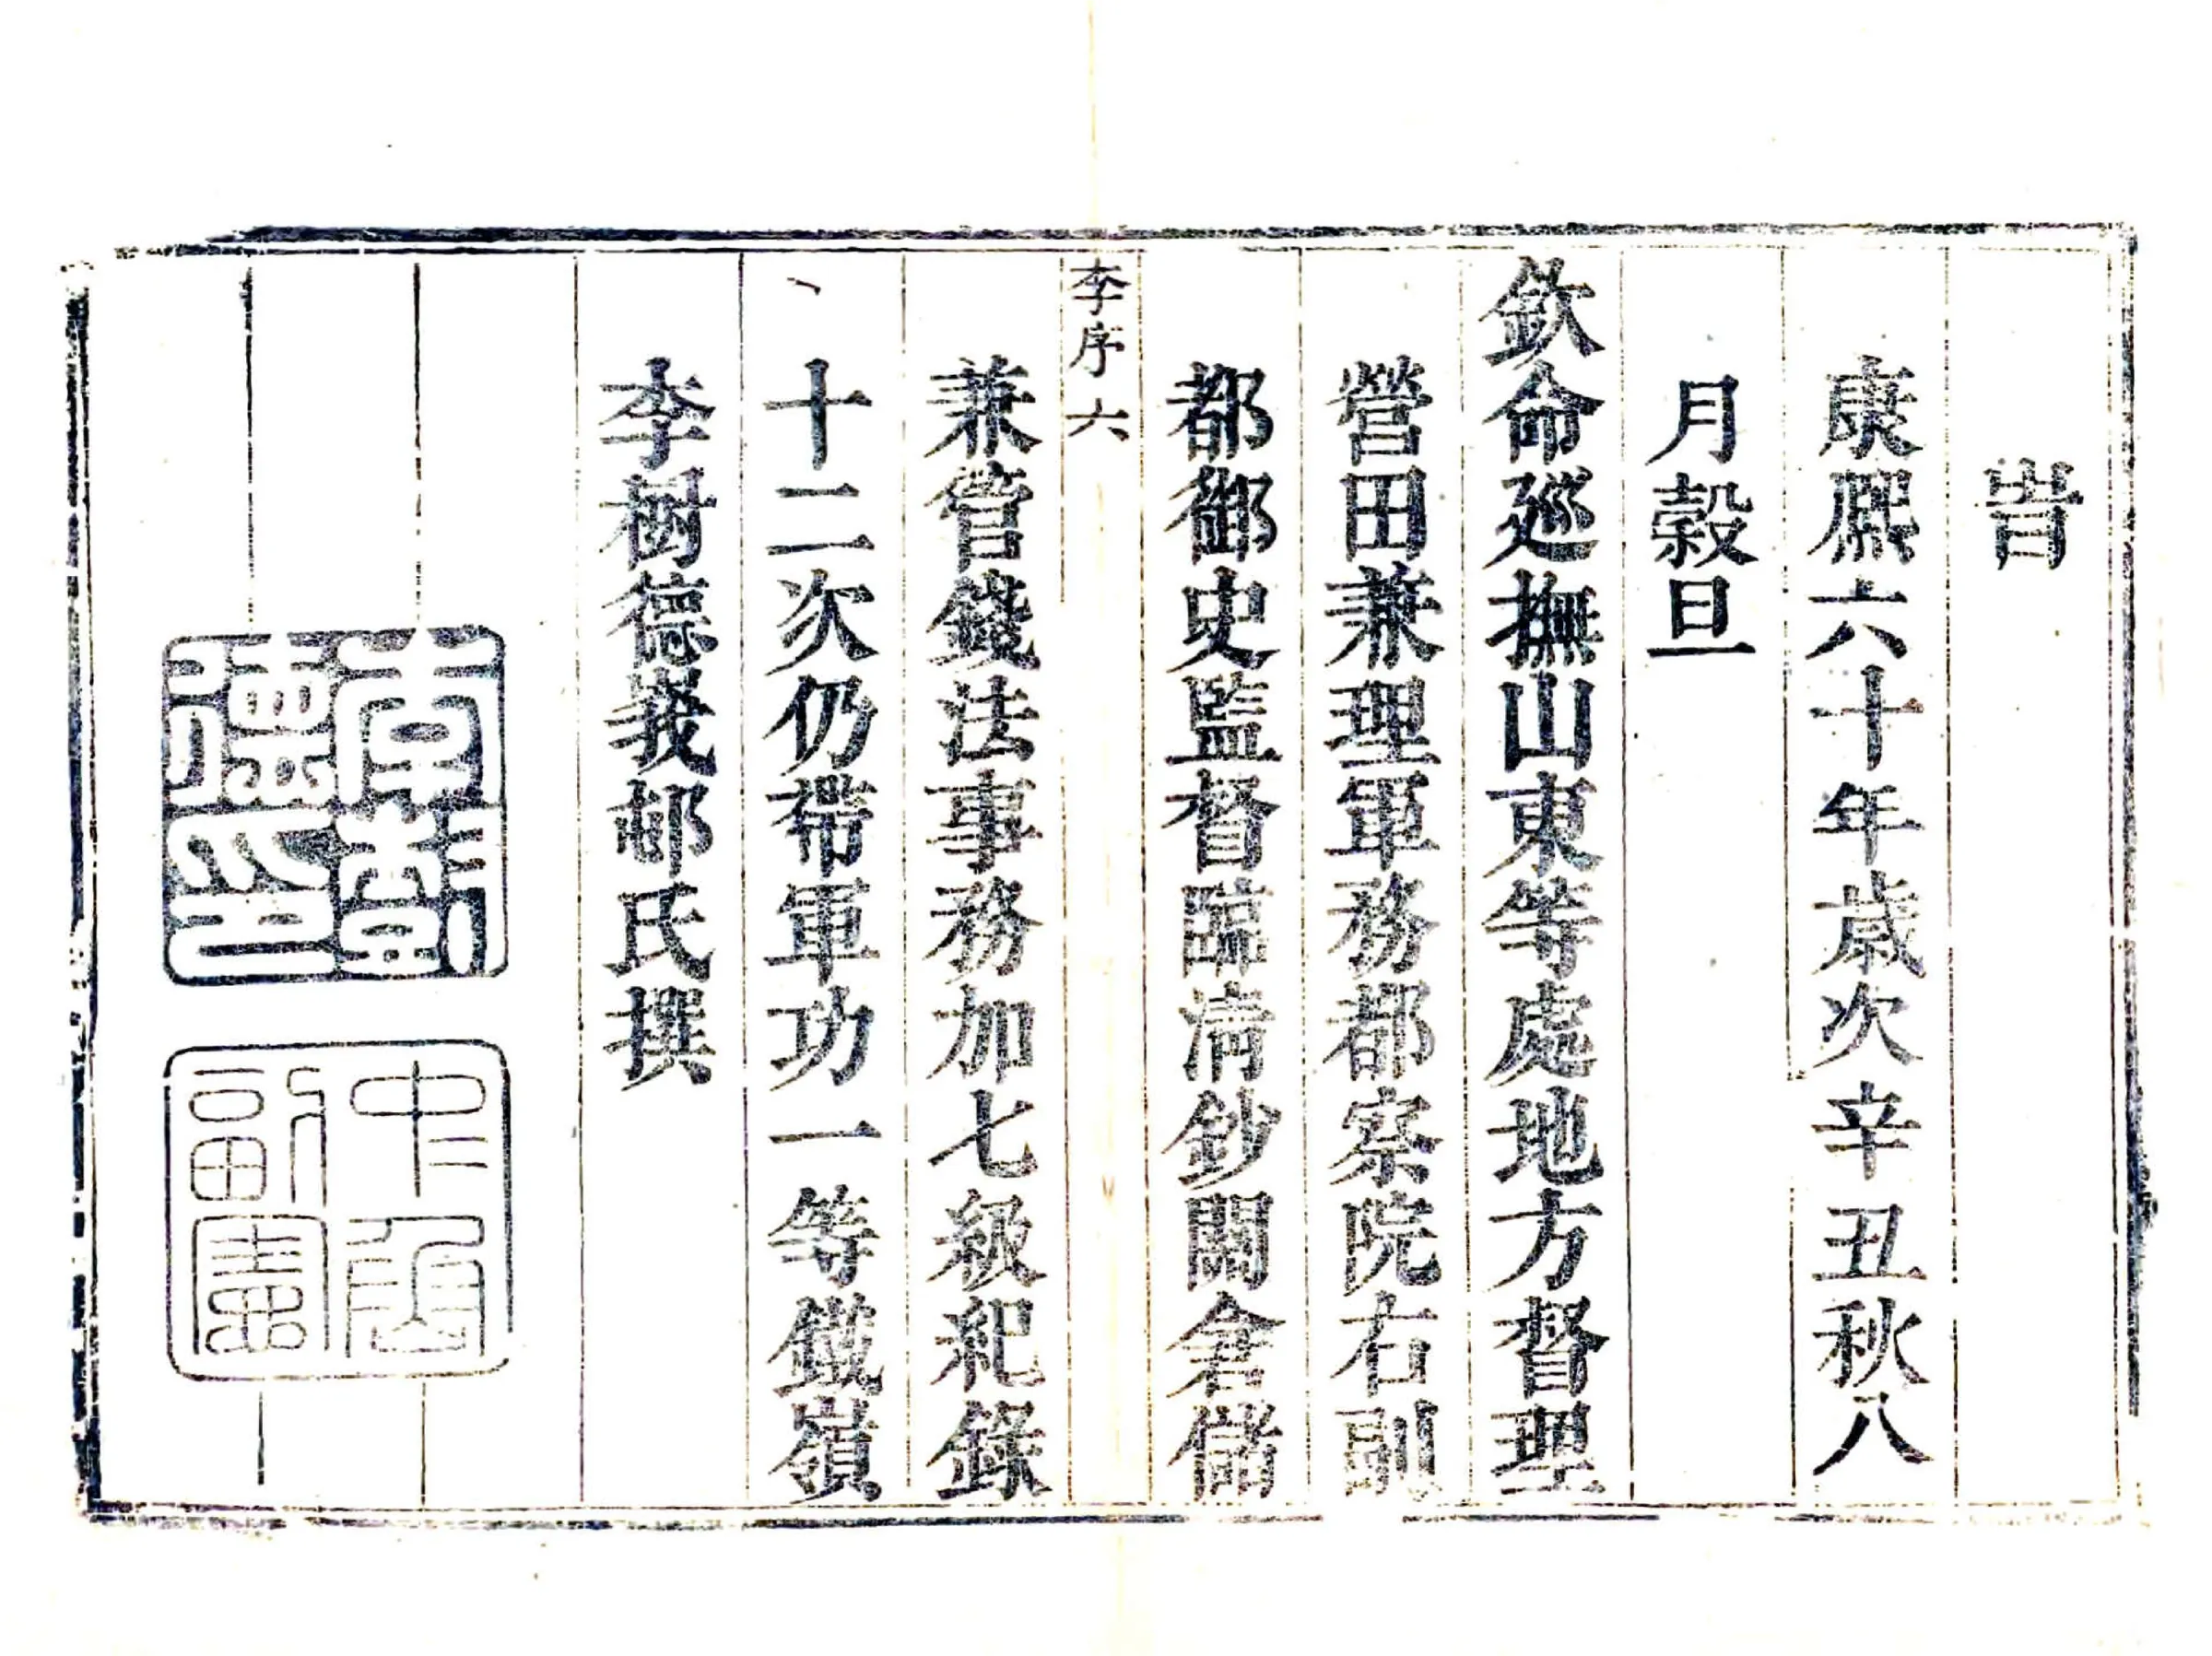 旹
康熙六十年歲次辛丑秋八
月穀旦
欽命廵撫山東等處地方督理
營田兼理軍務都察院右副
都御史監督臨清鈔關倉儲
李序 六
兼管錢法事務加七級紀錄
十二次仍帶軍功一等鐵嶺
李樹德峩邨氏撰
李樹德印